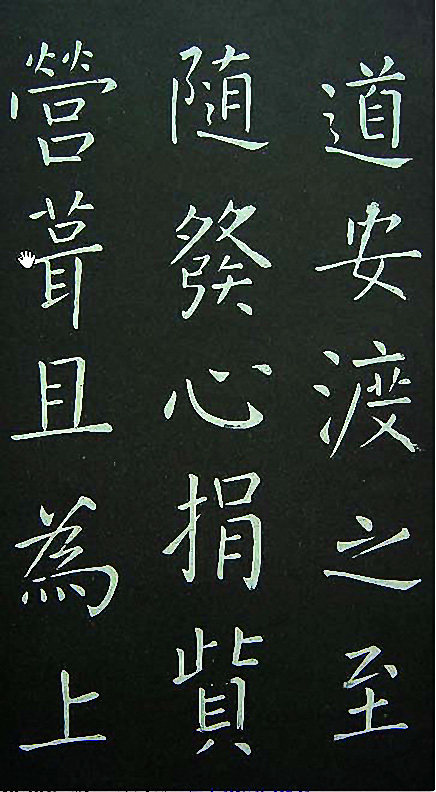 道安渡之至
隨發心捐貲
營葺且為上